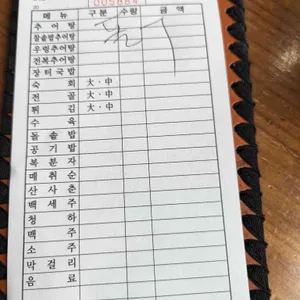 메 뉴 구분 수량 금 액
추 어 탕
찰솥밥추어탕
우렁추어탕
전복추어탕
장터국밥
숙 회 大 · 中
전 골 大 · 中
튀 김 大 · 中
수 육
돌 솥 밥
공 기 밥
복 분 자
매 취 순
산 사 춘
백 세 주
청 하
맥 주
소 주
막 걸 리
음 료